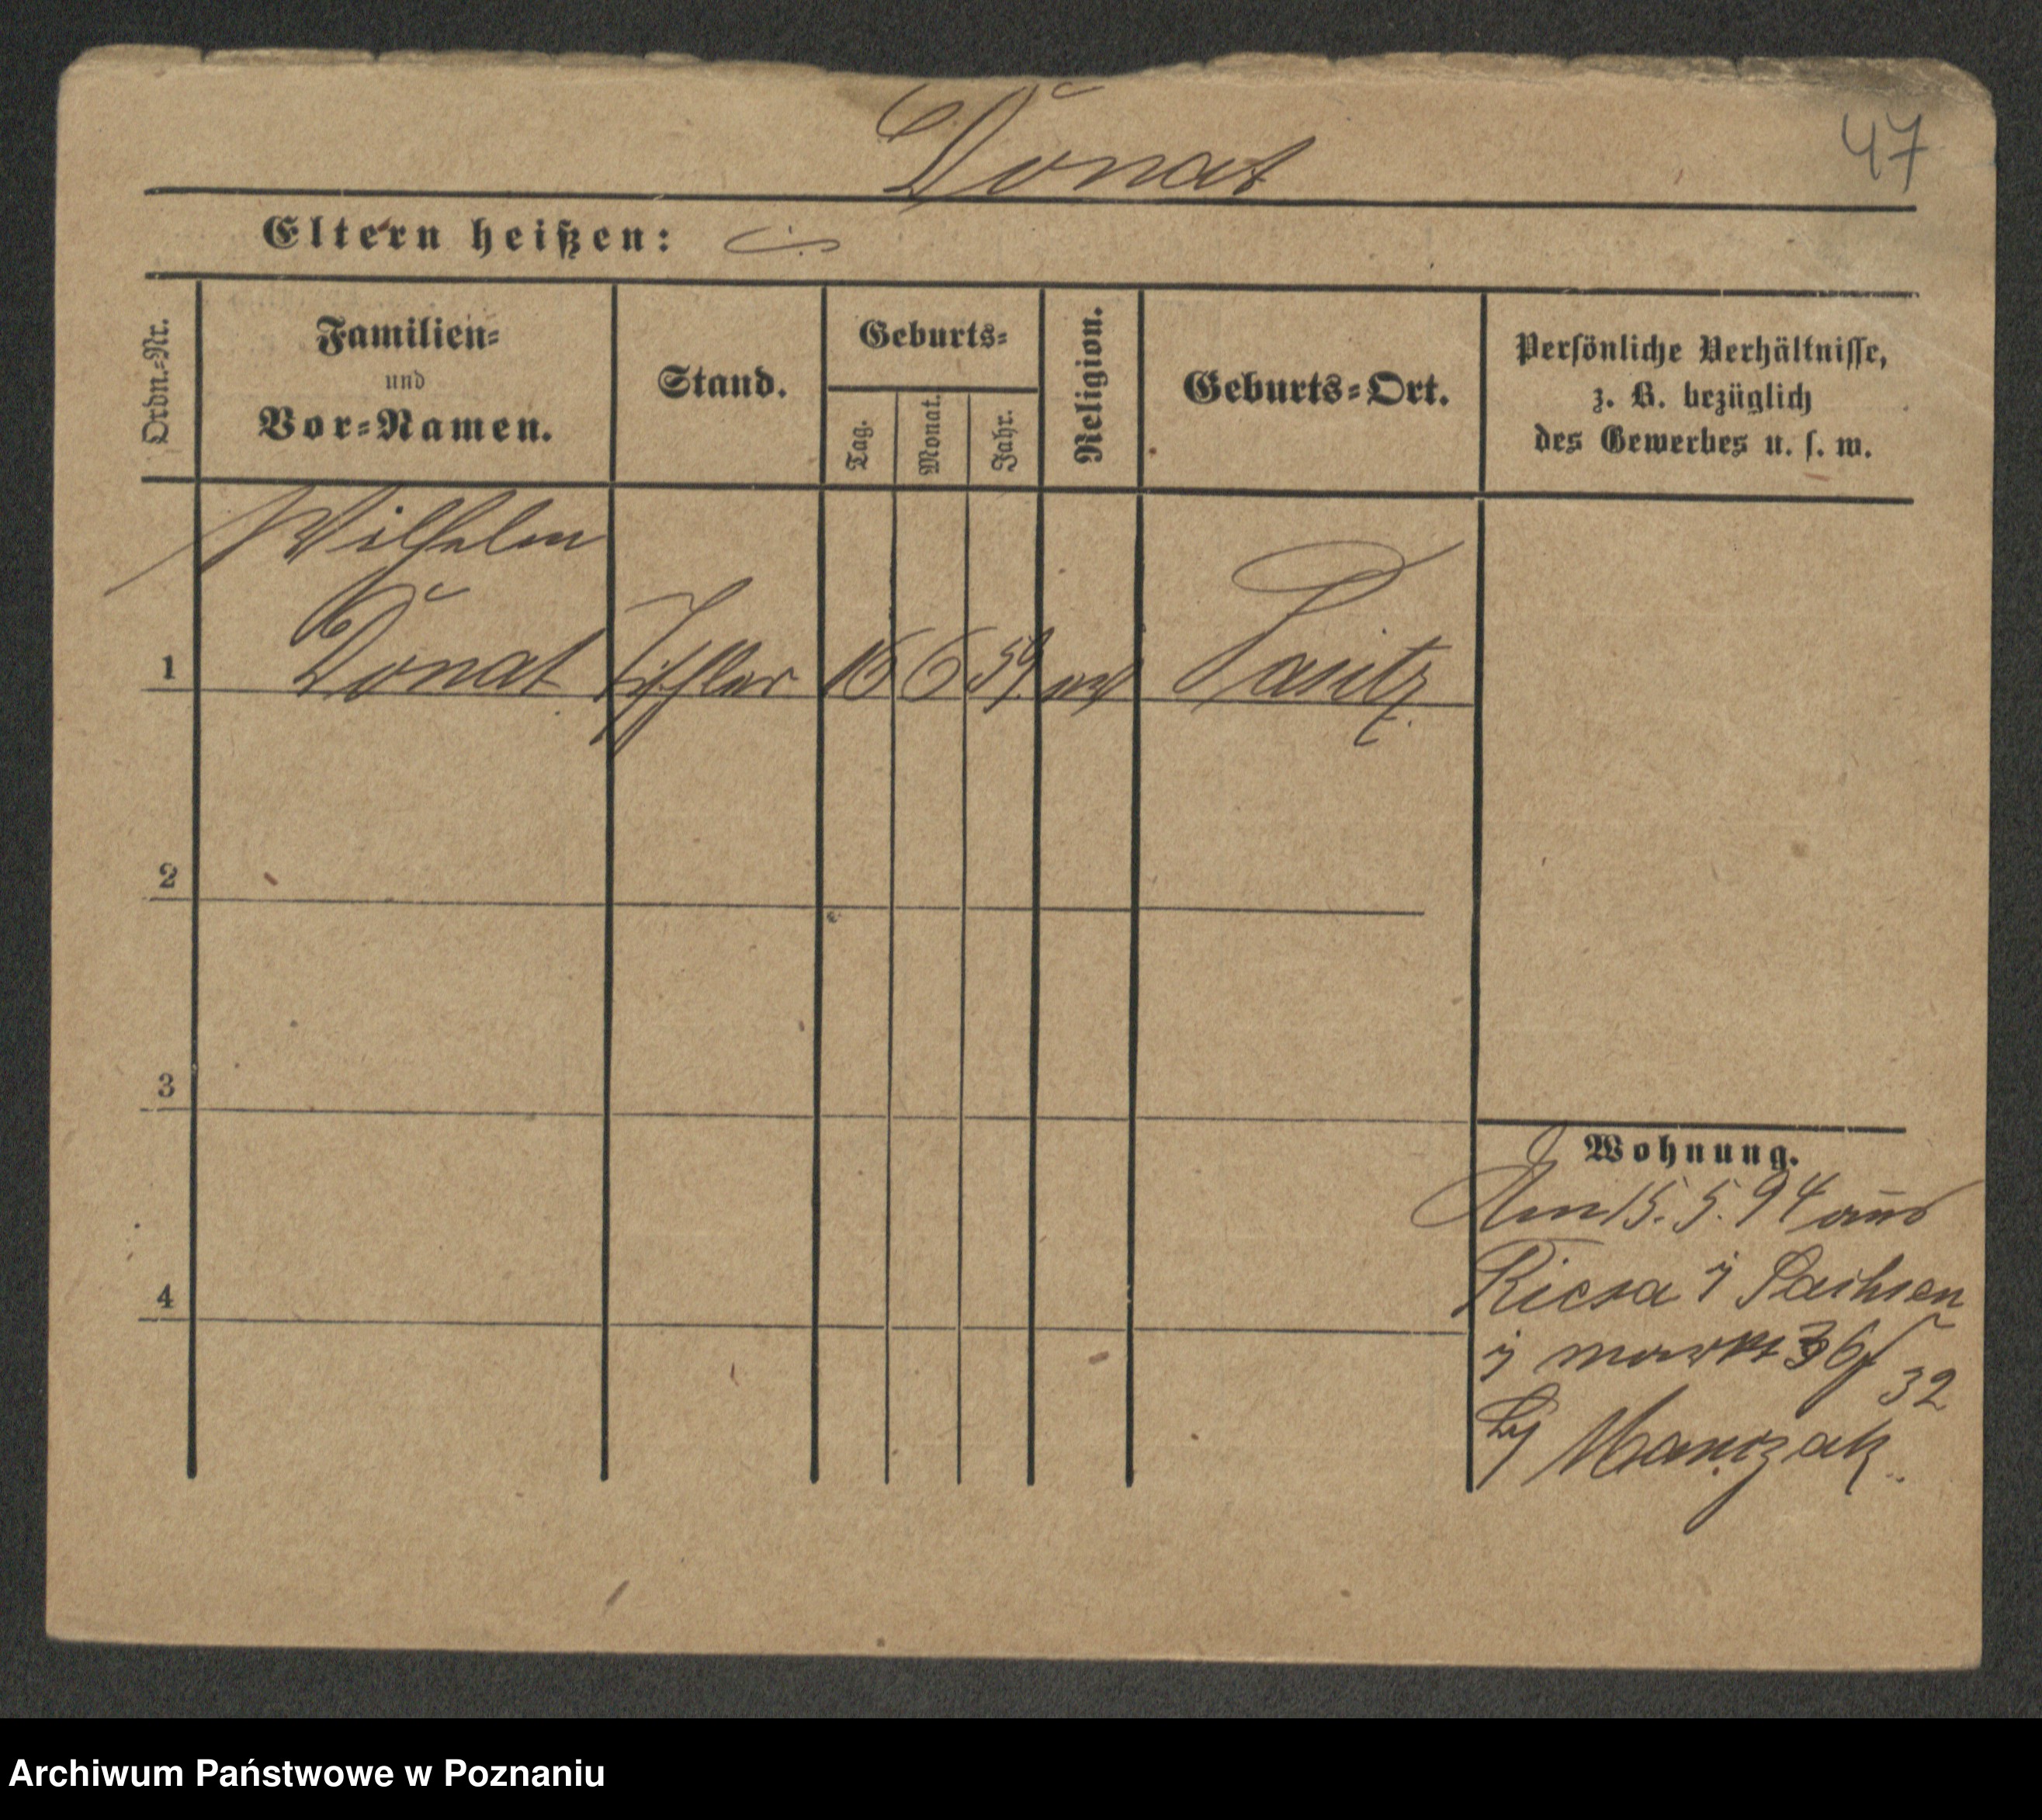 Donat
47
Eltern heißen:
Ordn.-Nr.
Familien-
und
Vor-Namen.
Stand.
Geburts-
Tag.
Monat.
Jahr.
Religion.
Geburts-Ort.
Persönliche Verhältnisse,
z. B. bezüglich
des Gewerbes u. s. w.
Wilhelm
1 Donat Tischler 16 6 59.
2
3
4
Wohnung.
Am 15. 5. 94 aus
Riesa Sachsen
markt 36
32
Manczak
Archiwum Państwowe w Poznaniu